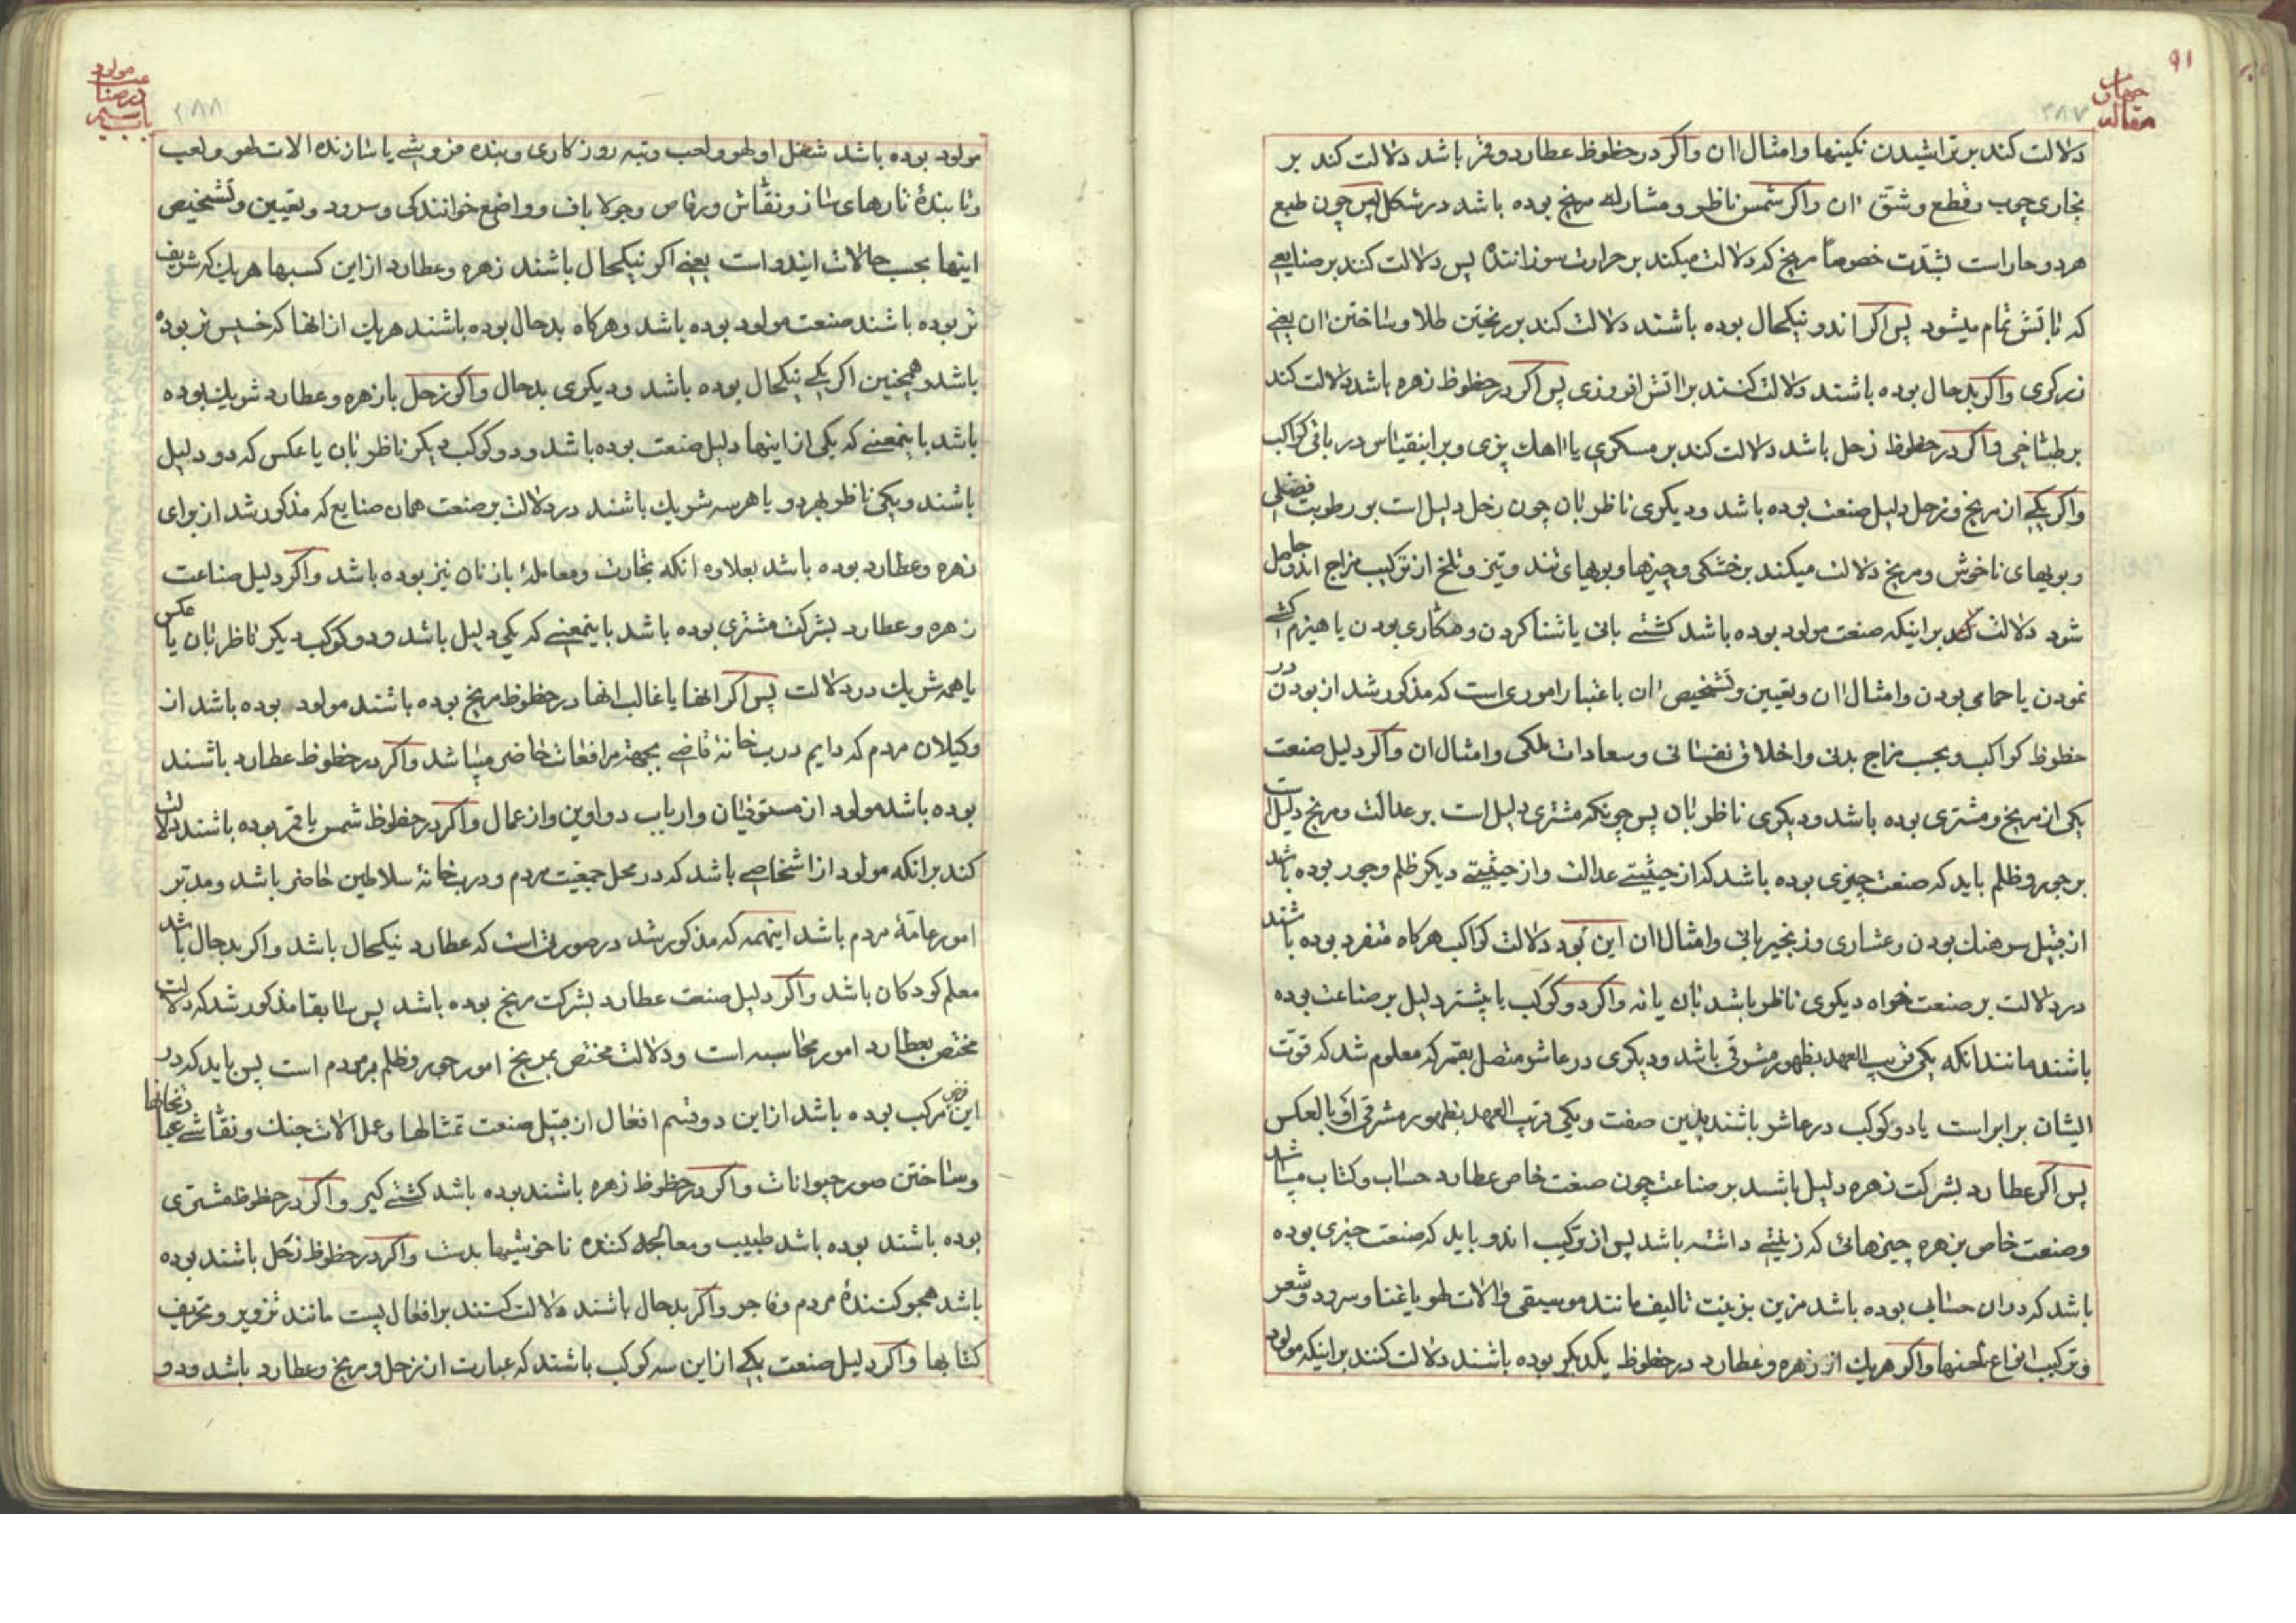 ۹۱
مقاله چهارم
۳۸۷
دلالت کند بر تراشیدن نکینها و امثال ان واکر در حظوظ عطارد و قمر باشد دلالت کند بر
نجاری چوب وقطع وشق ان واکر شمس ناظر و مشارک مریخ بوده باشد در شکل پس چون طبع
هر دو حار است بشدّت خصوصاً مریخ که دلالت میکند بر حرارت سوزاننده پس دلالت کند بر صنایعی
که باتش تمام میشود پس اکر اندو نیکحال بوده باشند دلالت کند بر ریختن طلا و ساختن ان یعنی
زرکری واکر بدحال بوده باشند دلالت کنند بر اتش افروزی پس اکر در حظوظ زهره باشد دلالت کند
بر طباخی واکر در حظوظ زحل باشد دلالت کند بر مسکری یا اهک پزی وبر اینقیاس در باقی کواکب
واکر یکی از مریخ وزحل دلیل صنعت بوده باشد ودیکری ناظر بان چون زحل دلیل است بر رطوبت فضلی
وبویهای ناخوش ومریخ دلالت میکند بر خشکی وچیزها وبویهای تند وتیز وتلخ از ترکیب مزاج اندو حاصل
شود دلالت کند بر اینکه صنعت مولود بوده باشد کشتی بانی یا شنا کردن و هکاری بودن یا هیزم کشی
نمودن یا حمامی بودن وامثال ان وتعیین وتشخیص ان باعتبار اموری است که مذکور شد از بودن در
حظوظ کواکب وبحسب مزاج بدنی واخلاق نفسانی وسعادات فلکی وامثال ان واکر دلیل صنعت
یکی از مریخ ومشتری بوده باشد ودیکری ناظر بان پس چونکه مشتری دلیل است بر عدالت ومریخ دلیل است
بر جور وظلم باید که صنعت چیزی بوده باشد که از حیثیتی عدالت واز حیثیتی دیکر ظلم وجور بوده باشد
از قبیل سرهنک بودن وعشاری وزنجیربانی وامثال ان این بود دلالت کواکب هرکاه منفرد بوده باشند
در دلالت بر صنعت خواه دیکری ناظر باشد بان یا نه واکر دو کوکب یا بیشتر دلیل بر صناعت بوده
باشند مانند انکه یکی قریب العهد بظهور مشرقی باشد ودیکری در عاشر متصل بقمر که معلوم شد که قوت
ایشان برابر است یا دو کوکب در عاشر باشند بدین صفت ویکی قریب العهد بظهور مشرقی او بالعکس
پس اکر عطارد بشرکت زهره دلیل باشد بر صناعت چون صنعت خاص عطارد حساب وکتاب میباشد
وصنعت خاص بزهره چیزهائی که زینتی داشته باشد پس از ترکیب اندو باید که صنعت چیزی بوده
باشد که دران حسابی بوده باشد مزین بزینت تالیف مانند موسیقی والات لهو یا غنا وسرود وشعر
وترکیب انواع لحنها واکر هر یک از زهره وعطارد در حظوظ یکدیکر بوده باشند دلالت کنند بر اینکه مولود
باب سیم در صناعت مولود
۳۸۸
مولود بوده باشد شغل او لهو ولعب وتبه روزکاری وبنده فروشی یا سازنده الات لهو ولعب
وتابندهٔ تارهای ساز ونقاش ورقاص وجولاباف وواضع خوانندکی وسرود وتعیین وتشخیص
اینها بحسب حالات ایندو است یعنی اکر نیکحال باشند زهره وعطارد از این کسبها هریک که شریف
تر بوده باشند صنعت مولود بوده باشد وهرکاه بدحال بوده باشند هریک از انها که خسیس تر بوده
باشد وهمچنین اکر یکی نیکحال بوده باشد ودیکری بدحال واکر زحل بازهره وعطارد شریک بوده
باشد باینمعنی که یکی از اینها دلیل صنعت بوده باشد ودو کوکب دیکر ناظر بان یا عکس که دو دلیل
باشند ویکی ناظر بهر دو یا هر سه شریک باشند در دلالت بر صنعت همان صنایع که مذکور شد از برای
زهره وعطارد بوده باشد بعلاوه انکه تجارت ومعاملهٔ بازنان نیز بوده باشد واکر دلیل صناعت
زهره وعطارد بشرکت مشتری بوده باشد باینمعنی که یکی دلیل باشد ودو کوکب دیکر ناظر بان یا عکس
یا همه شریک در دلالت پس اکر انها یا غالب انها در حظوظ مریخ بوده باشند مولود بوده باشد از
وکیلان مردم که دایم در بخانهٔ قاضی بجهة مرافعات حاضر میباشد واکر در حظوظ عطارد باشند
بوده باشد مولود از مستوفیان وارباب دواوین واز عمال واکر در حظوظ شمس یا قمر بوده باشند دلالت
کند بر انکه مولود از اشخاصی باشد که در محل جمعیت مردم ودرب خانهٔ سلاطین حاضر باشد ومدبّر
امور عامهٔ مردم باشد اینهمه که مذکور شد در صورتی است که عطارد نیکحال باشد واکر بدحال باشد
معلم کودکان باشد واکر دلیل صنعت عطارد بشرکت مریخ بوده باشد پس سابقا مذکور شد که دلالت
مختص بعطارد امور محاسبه است ودلالت مختص بمریخ امور جور وظلم بر مردم است پس باید که در
این فرض مرکب بوده باشد از این دو قسم افعال از قبیل صنعت تمثالها وعمل الات جنک ونقاشی
وساختن صور حیوانات واکر در حظوظ زهره باشند بوده باشد کشتی کیر واکر در حظوظ مشتری
بوده باشند بوده باشد طبیب ومعالجه کننده ناخوشیها بدست واکر در حظوظ زحل باشند بوده
باشد هجو کنندهٔ مردم وفاجر واکر بدحال باشند دلالت کنند بر افعال پست مانند تزویر وتحریف
کتابها واکر دلیل صنعت یکی از این سه کوکب باشند که عبارت از زحل ومریخ وعطارد باشد ودو